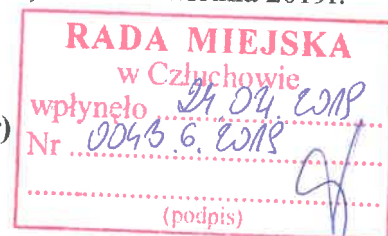 2019r.
RADA MIEJSKA
w Człuchowie
wpłynęło 24.04.2019
)
Nr 0043.6.2019
(podpis)